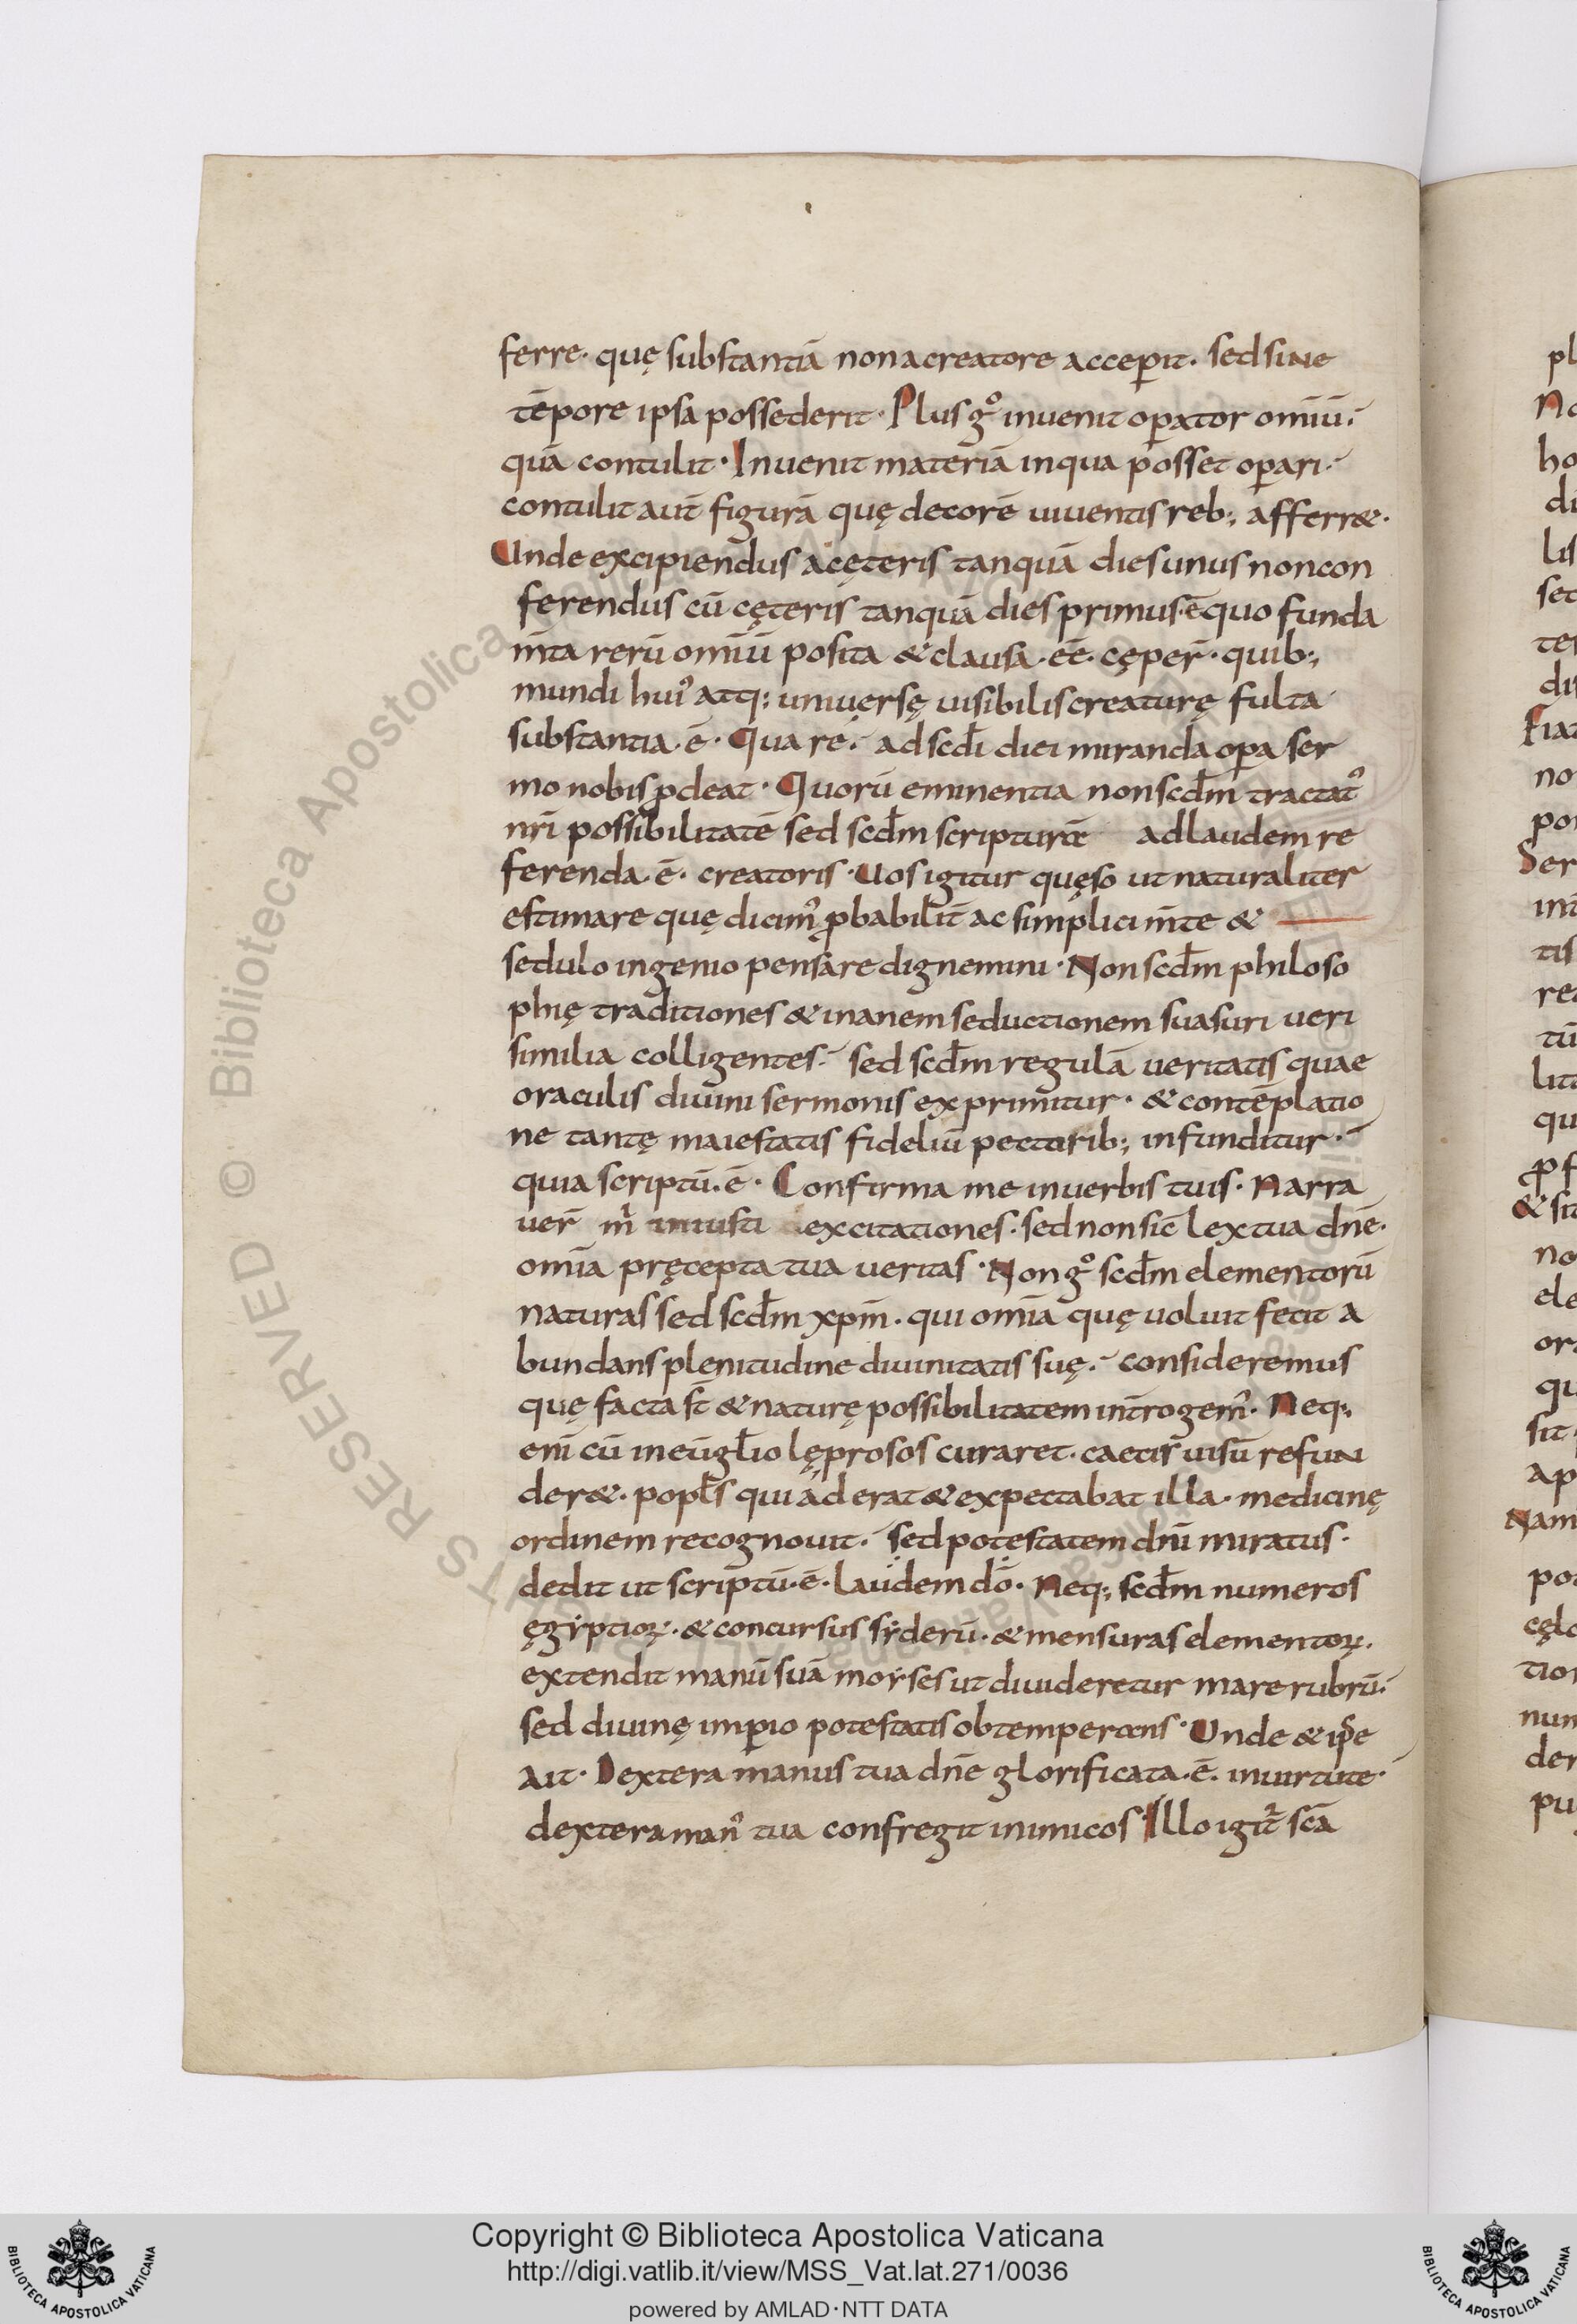 ferre· quę substantiā non a creatore acceꝑit· sed sine
tēpore ipsa possederit· Plus g̊ inuenit oꝑator om̄iū·
quā contulit· Inuenit materiā in qua posset oꝑari·
contulit aut̄ figurā quę decorē uiuentis reb; afferr&·
Unde excipiendus a cęteris tanquā dies unus non con
ferendus cū cęteris tanquā dies primus· ē quo funda
m̄ta rerū om̄iū posita & clausa· eē· cęper̄· quib;
mundi hui᾽ atq; uniuersę uisibilis creaturę fulta
substantia· ē· Qua re· ad scd̄i diei miranda oꝑa ser
mo nobis ꝓdeat· Quorū eminentia non scd̄m tractat᾽
nr̄i possibilitatē sed scd̄m scripturę ad laudem re
ferenda· ē· creatoris· Uos igitur quęso ut naturaliter
estimare quę dicim᾽ ꝓbabilit̄ ac simplici m̄te &
sedulo ingenio pensare dignemini· Non scd̄m philoso
phię traditiones & inanem seductionem suasuri ueri
similia colligentes· sed scd̄m regulā ueritatis quae
oraculis diuini sermonis exprimitur· & contēplatio
ne tantę maiestatis fideliū pectorib; infunditur·
quia scriptū· ē· Confirma me in uerbis tuis· Narra
uer̄ m̄ iniusti excitationes· sed non sic̄ lex tua dn̄e·
om̄ia pręcepta tua ueritas· Non g̊ scd̄m elementorū
naturas sed scd̄m xp̄m· qui om̄ia quę uoluit fecit a
bundans plenitudine diuinitatis suę· consideremus
quę facta st̄ & naturę possibilitatem int̄rogem᾽· Neq;
eni᷄ cū in eūgl̄io lęprosos curaret· caecis uisū refun
der&· popl̄s qui aderat & expectabat illa· medicinę
ordinem recognouit· sed potestatem dn̄i miratus·
dedit ut scriptū· ē· laudem dō· Neq; scd̄m numeros
ęgiptioꝝ· & concursus syderū· & mensuras elementoꝝ·
extendit manū suā moyses ut diuideretur mare rubrū·
sed diuinę imꝑio potestatis obtemperans· Unde & ip̄e
ait· Dextera manus tua dn̄e glorificata· ē· in uirtute·
dextera man᾽ tua confregit inimicos Illo igit̄ scā
pl
No
ho
di
lis
sed
ter
dis
Fiat
no
por
Ser
int
tis
rea
tū
lita
qu
ꝓf
& sit
no
ele
ora
qu
sit
ap
Nam
pot
cęlo
tion
num
der
pu
© Biblioteca Apostolica Vaticana
RESERVED
Copyright © Biblioteca Apostolica Vaticana
http://digi.vatlib.it/view/MSS_Vat.lat.271/0036
powered by AMLAD·NTT DATA
BIBLIOTECA APOSTOLICA VATICANA
BIBLIOTECA APOSTOLICA VATICANA